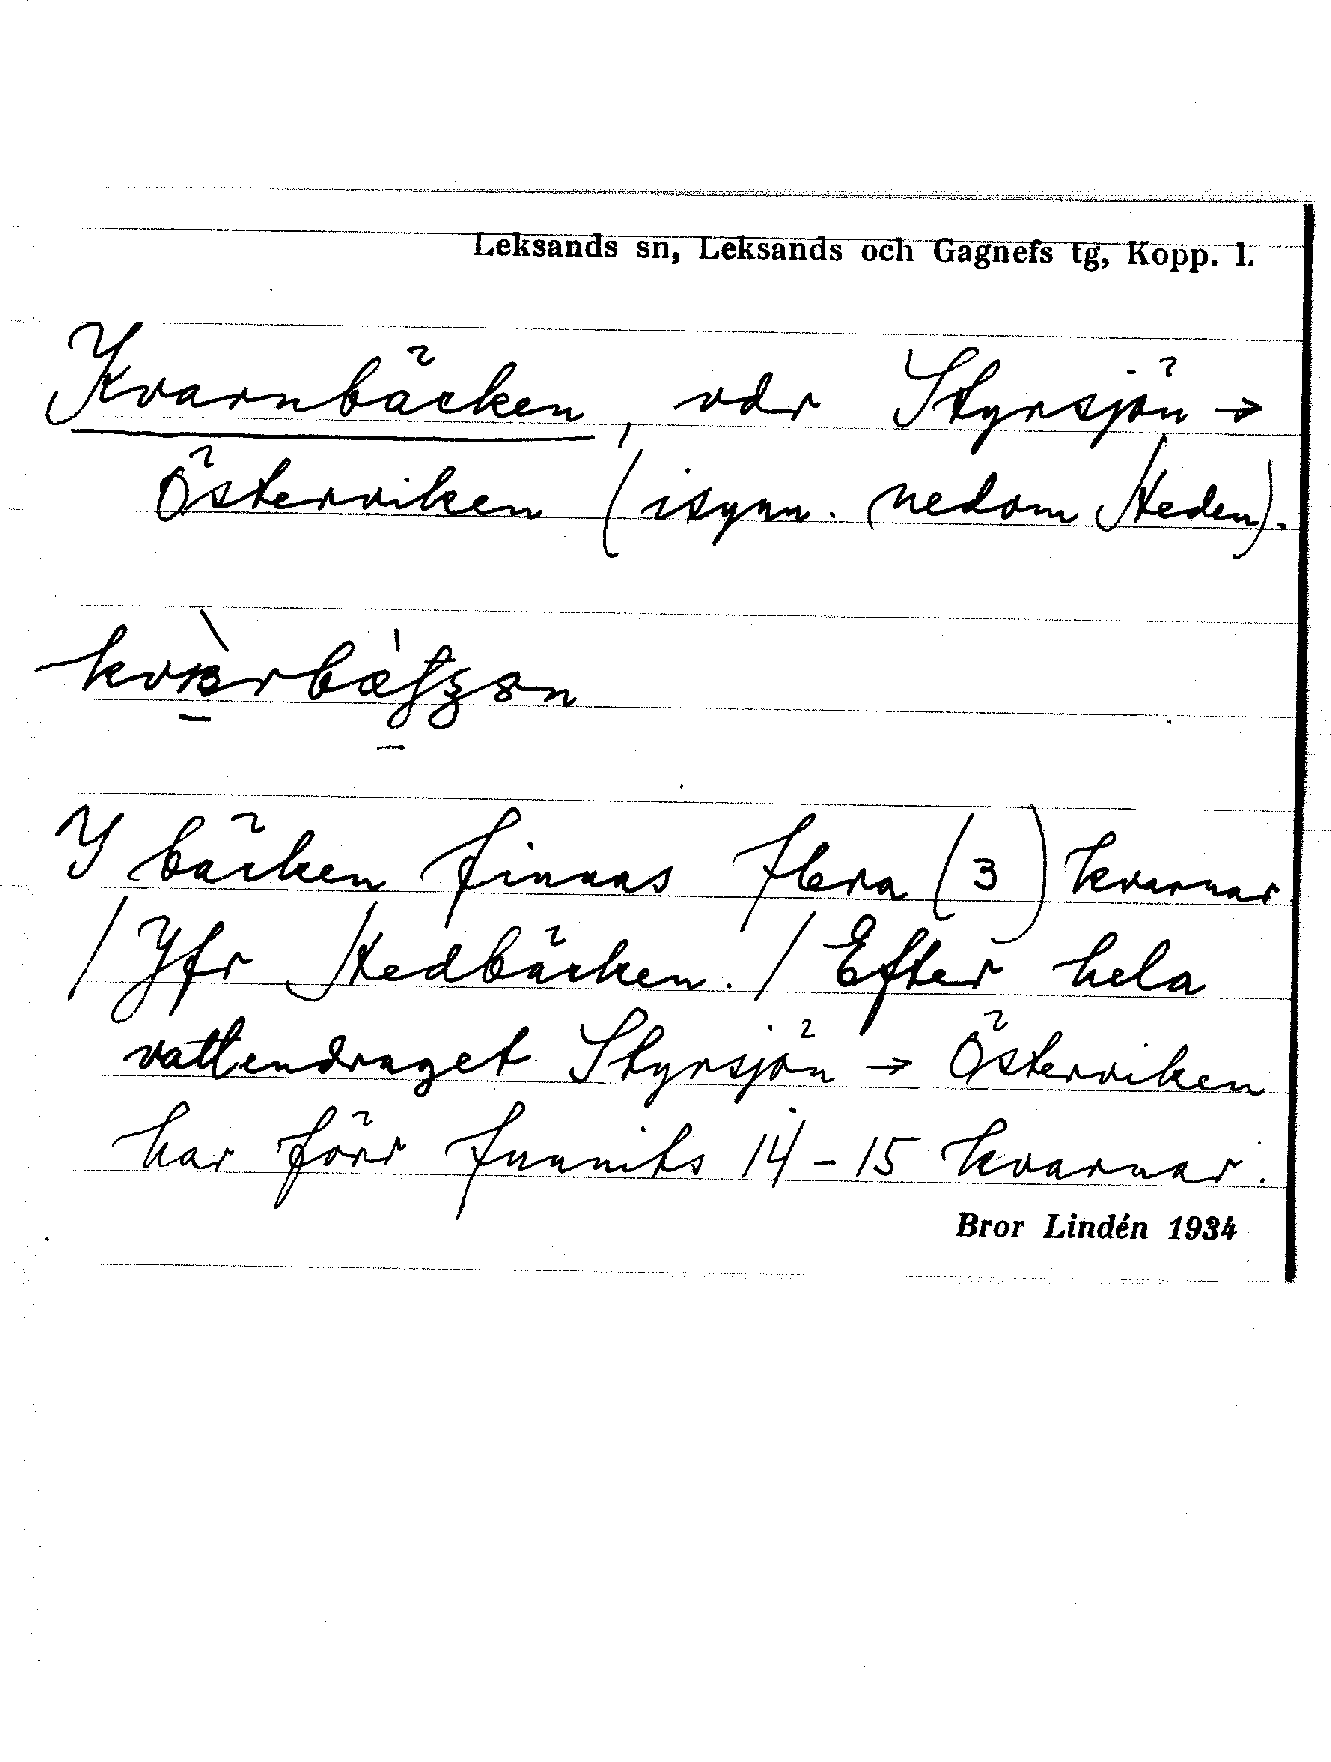 Leksands sn, Leksands och Gagnefs tg, Kopp. l.
Kvarnbäcken, vdr Styrsjön →
Österviken (isynn. nedom Heden).
I bäcken finnas flera (3) kvarnar
/ Jfr Hedbäcken. / Efter hela
vattendraget Styrsjön → Österviken
har förr funnits 14 - 15 kvarnar.
Bror Lindén 1934